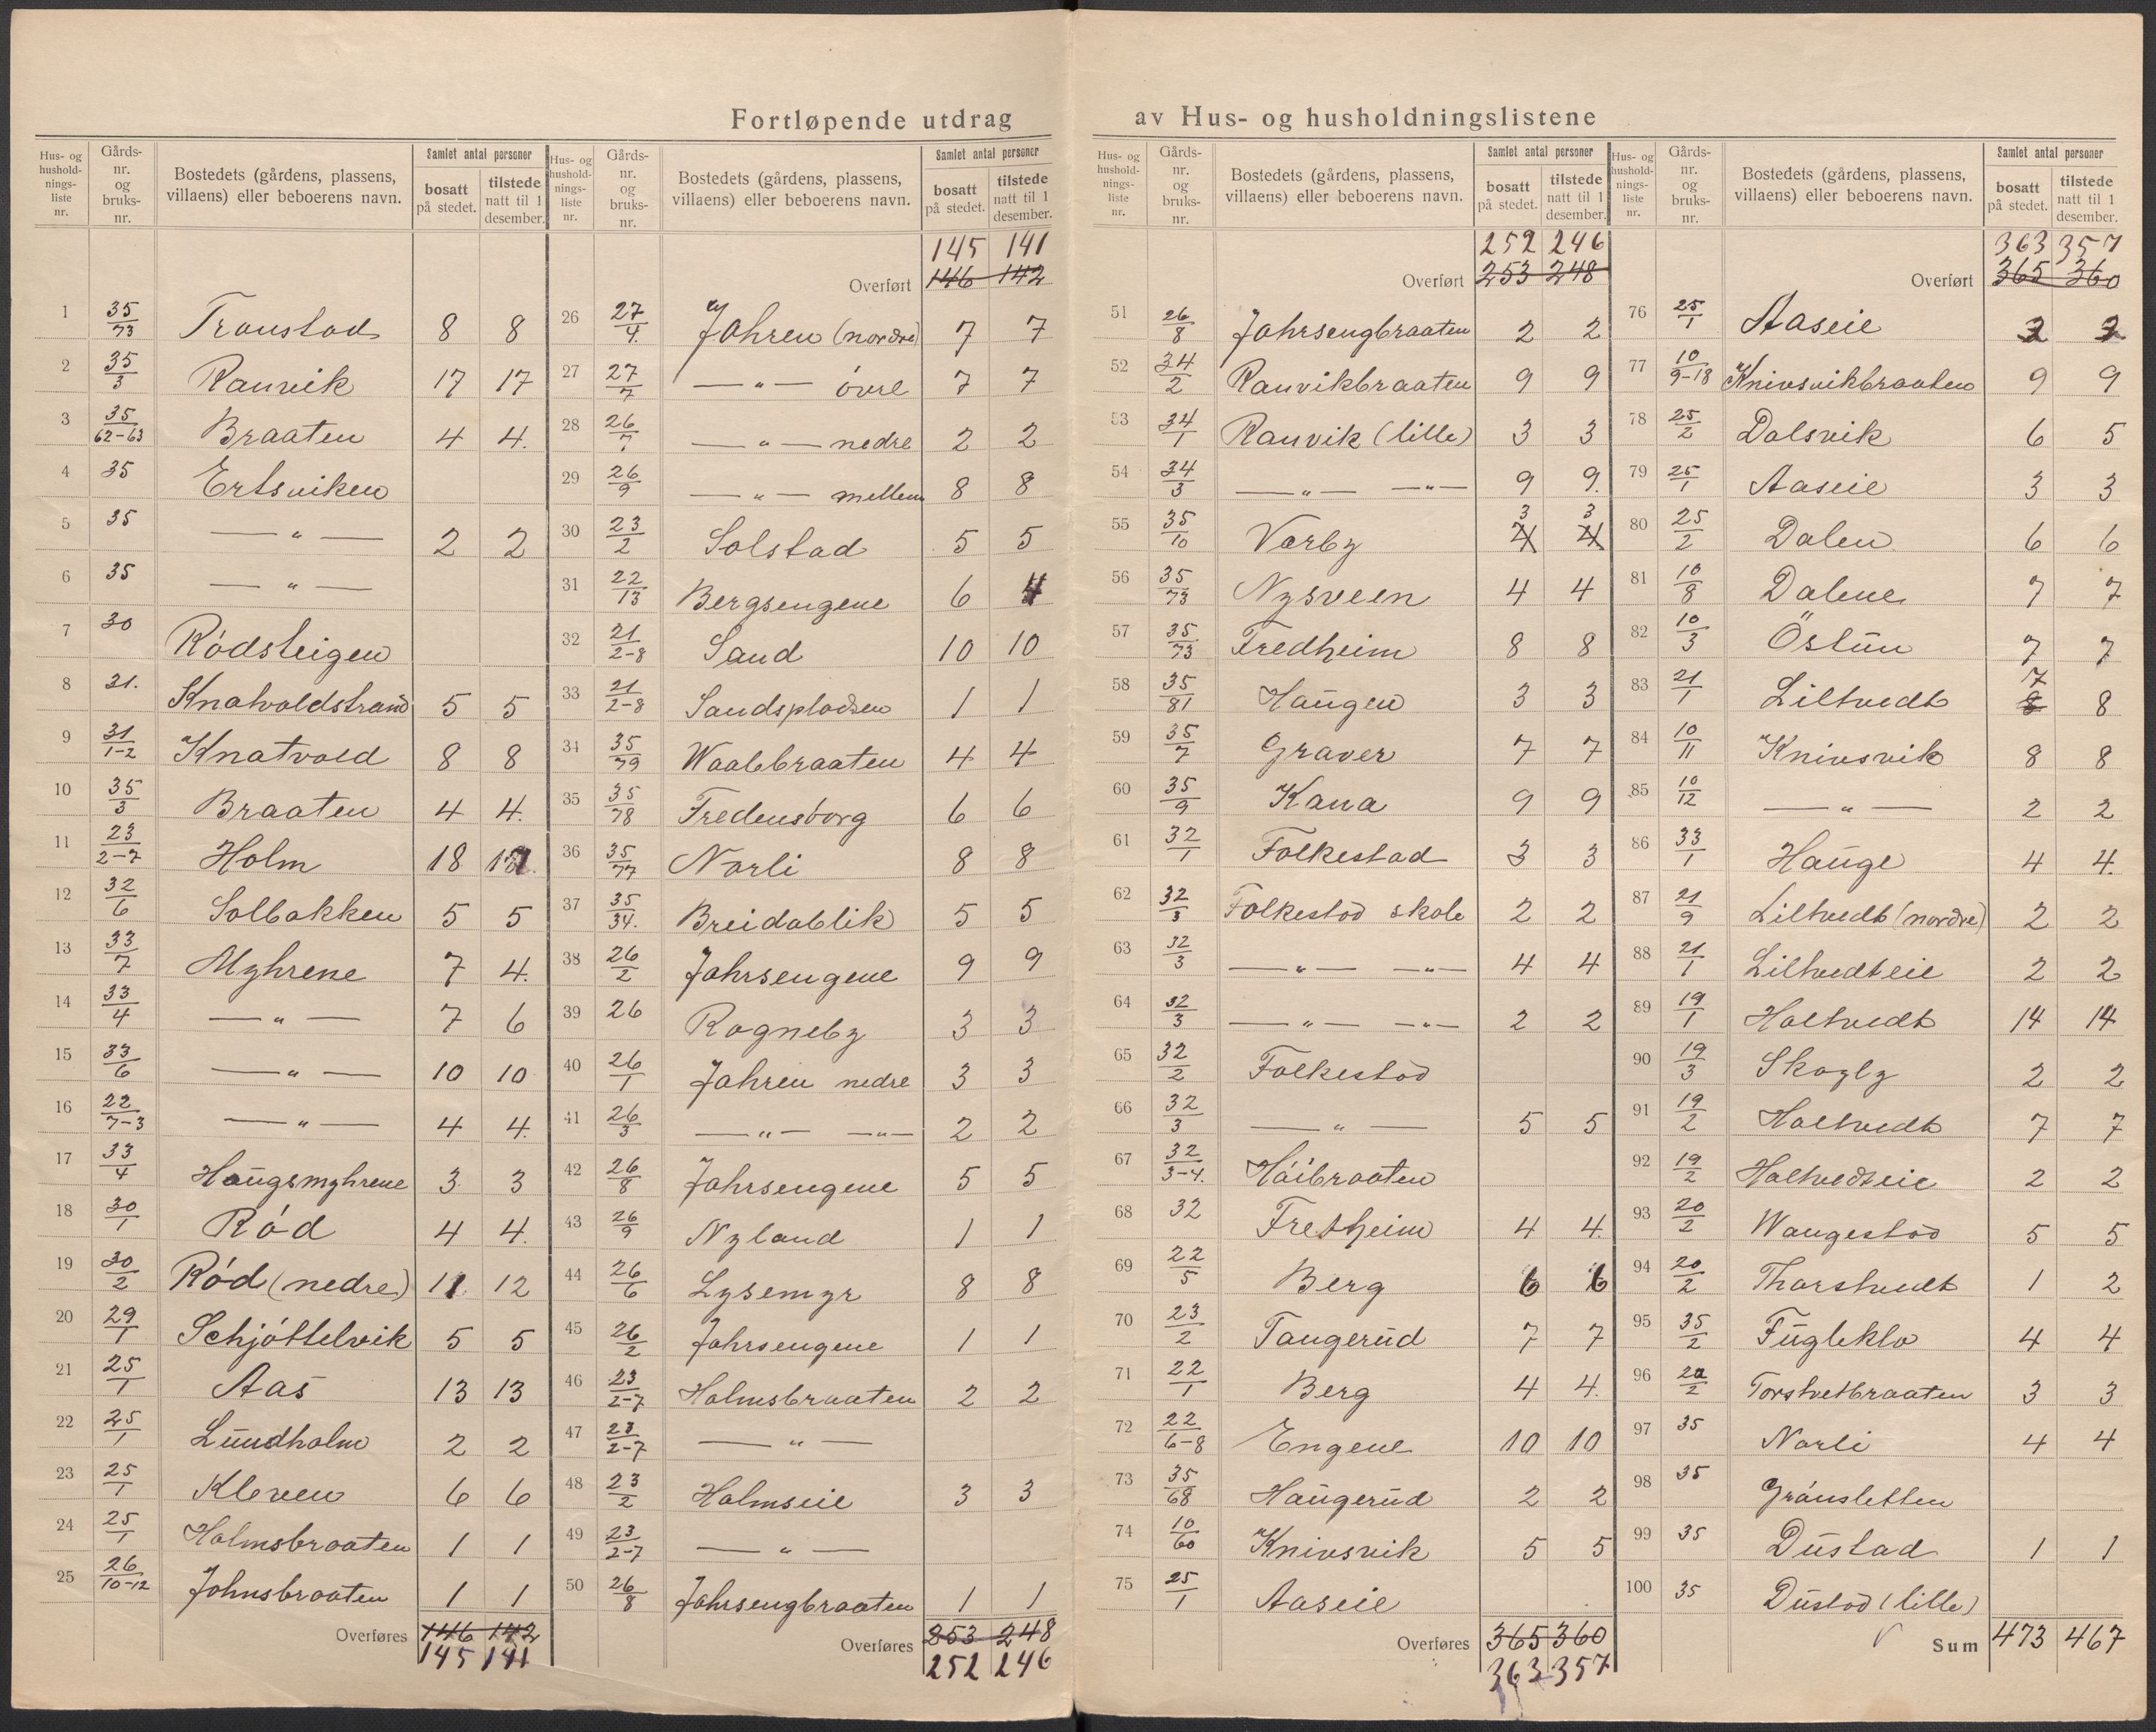 Fortløpende utdrag av Hus- og husholdningslistene
Hus- og husholdnings-liste nr. | Gårds-nr. og bruks-nr. | Bostedets (gårdens, plassens, villaens) eller beboerens navn. | Samlet antal personer | bosatt på stedet. | tilstede natt til 1 desember.
1 35/73 Tronstad 8 8
2 35/3 Ranvik 17 17
3 35/62-63 Braaten 4 4.
4 35 Ertsviken
5 35 — " — 2 2
6 35 — " —
7 30 Rödsteigen
8 31. Knatvoldstrand 5 5
9 31/1-2 Knatvold 8 8
10 35/3 Braaten 4 4.
11 23/2-7 Holm 18 17
12 32/6 Solbakken 5 5
13 33/7 Myhrene 7 4.
14 33/4 — " — 7 6
15 33/6 — " — 10 10
16 22/7-3 — " — 4 4.
17 33/4 Haugsmyhrene 3 3
18 30/1 Röd 4 4.
19 30/2 Röd (nedre) 11 12
20 29/1 Schjöttelvik 5 5
21 25/1 Aas 13 13
22 25/1 Lundholm 2 2
23 25/1 Kleven 6 6
24 25/1 Holmsbraaten 1 1
25 26/10-12 Johnsbraaten 1 1
Overføres 146 142
145 141
Hus- og husholdnings-liste nr. | Gårds-nr. og bruks-nr. | Bostedets (gårdens, plassens, villaens) eller beboerens navn. | Samlet antal personer | bosatt på stedet. | tilstede natt til 1 desember.
145 141
Overført 146 142
26 27/4. Jahren (nordre) 7 7
27 27/7 — " — övre 7 7
28 26/7 — " — nedre 2 2
29 26/9 — " — mellem 8 8
30 23/2 Solstad 5 5
31 22/13 Bergsengene 6 4
32 21/2-8 Sand 10 10
33 21/2-8 Sandspladsen 1 1
34 35/79 Waalebraaten 4 4
35 35/78 Fredensborg 6 6
36 35/77 Norli 8 8
37 35/34. Breidablik 5 5
38 26/2 Jahrsengene 9 9
39 26 Rogneby 3 3
40 26/1 Jahren nedre 3 3
41 26/3 — " — — " — 2 2
42 26/8 Jahrsengene 5 5
43 26/9 Nyland 1 1
44 26/6 Lysemyr 8 8
45 26/2 Jahrsengene 1 1
46 23/2-7 Holmsbraaten 2 2
47 23/2-7 — " —
48 23/2 Holmseie 3 3
49 23/2-7 — " —
50 26/8 Jahrsengbraaten 1 1
Overføres 253 248
252 246
Hus- og husholdnings-liste nr. | Gårds-nr. og bruks-nr. | Bostedets (gårdens, plassens, villaens) eller beboerens navn. | Samlet antal personer | bosatt på stedet. | tilstede natt til 1 desember.
252 246
Overført 253 248
51 26/8 Jahrsengbraaten 2 2
52 34/2 Ranvikbraaten 9 9
53 34/1 Ranvik (lille) 3 3
54 34/3 — " — — " — 9 9.
3 3
55 35/10 Varby 4 4
56 35/73 Nysveen 4 4
57 35/73 Fredheim 8 8
58 35/81 Haugen 3 3
59 35/7 Graver 7 7
60 35/9 Kana 9 9
61 32/1 Folkestad 3 3
62 32/3 Folkestad skole 2 2
63 32/3 — " — — " — 4 4
64 32/3 — " — — " — 2 2
65 32/2 Folkestad
66 32/3 — " — 5 5
67 32/3-4. Höibraaten
68 32 Fretheim 4 4.
69 22/5 Berg 6 6
70 23/2 Tangerud 7 7
71 22/1 Berg 4 4.
72 22/6-8 Engene 10 10
73 35/68 Haugerud 2 2
74 10/60 Knivsvik 5 5
75 25/1 Aaseie
Overføres 365 360
363 357
Hus- og husholdnings-liste nr. | Gårds-nr. og bruks-nr. | Bostedets (gårdens, plassens, villaens) eller beboerens navn. | Samlet antal personer | bosatt på stedet. | tilstede natt til 1 desember.
363 357
Overført 365 360
76 25/1 Aaseie
77 10/9-18 Knivsvikbraaten 9 9
78 25/2 Dalsvik 6 5
79 25/1 Aaseie 3 3
80 25/2 Dalen 6 6
81 10/8 Dalene 7 7
82 10/3 Östun 7 7
7
83 21/1 Liltvedt 8 8
84 10/11 Knivsvik 8 8
85 10/12 — " — 2 2
86 33/1 Hauge 4 4.
87 21/9 Liltvedt (nordre) 2 2
88 21/1 Liltvedteie 2 2
89 19/1 Holtvedt 14 14
90 19/3 Skogly 2 2
91 19/2 Holtvedt 7 7
92 19/2 Holtvedteie 2 2
93 20/2 Wangestad 5 5
94 20/2 Thorstvedt 1 2
95 35/2 Fugleklo 4 4
96 20/2 Torstvetbraaten 3 3
97 35 Norli 4 4
98 35 Grönsletten
99 35 Dustad 1 1
100 35 Dustad (lille)
Sum 473 467